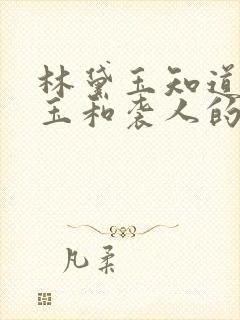 林黛玉知道
玉和袭人的
凡柔